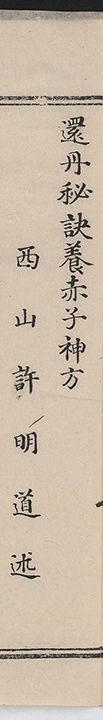 還丹秘訣養赤子神方
西山許明道述